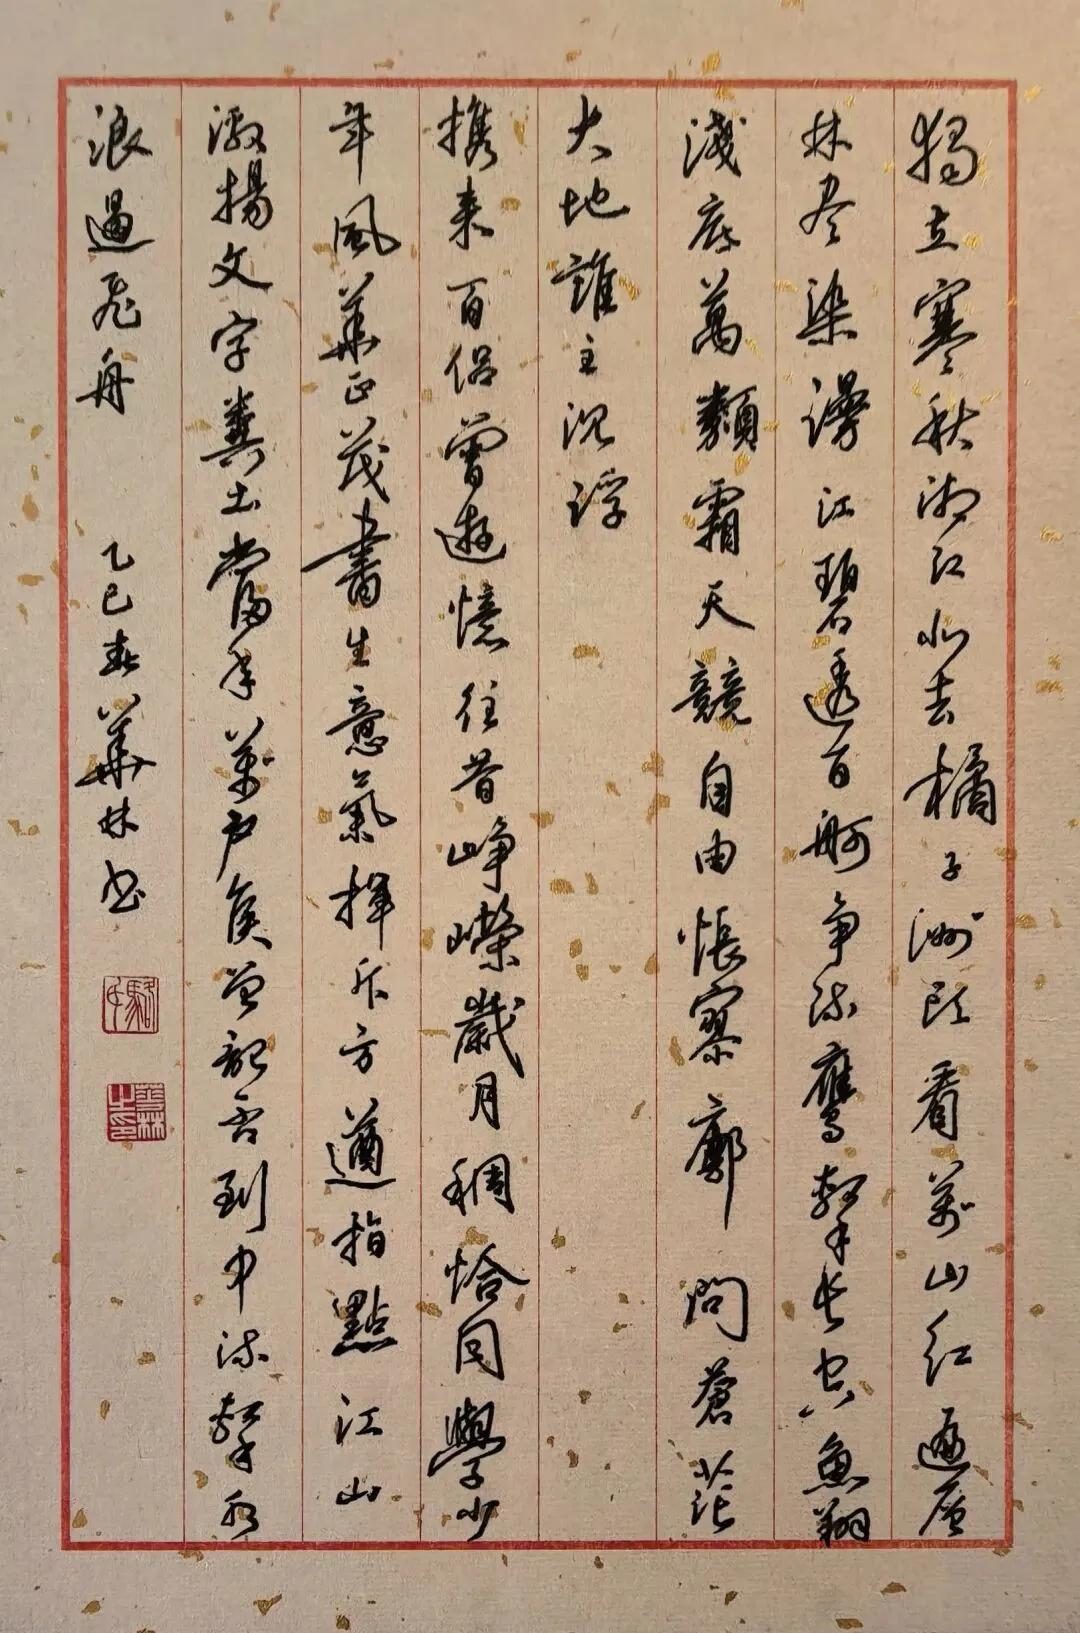 獨立寒秋湘江北去橘子洲頭看萬山紅遍層
林尽染漫江碧透百舸争流鷹擊長空魚翔
淺底萬類霜天競自由悵寥廓問蒼茫
大地誰主沉浮
携来百侶曾遊憶往昔崢嶸歲月稠恰同學少
年風華正茂書生意氣揮斥方遒指點江山
激揚文字糞土當年萬户侯曾記否到中流擊水
浪遏飛舟
乙巳春華林书
駱
華林之印